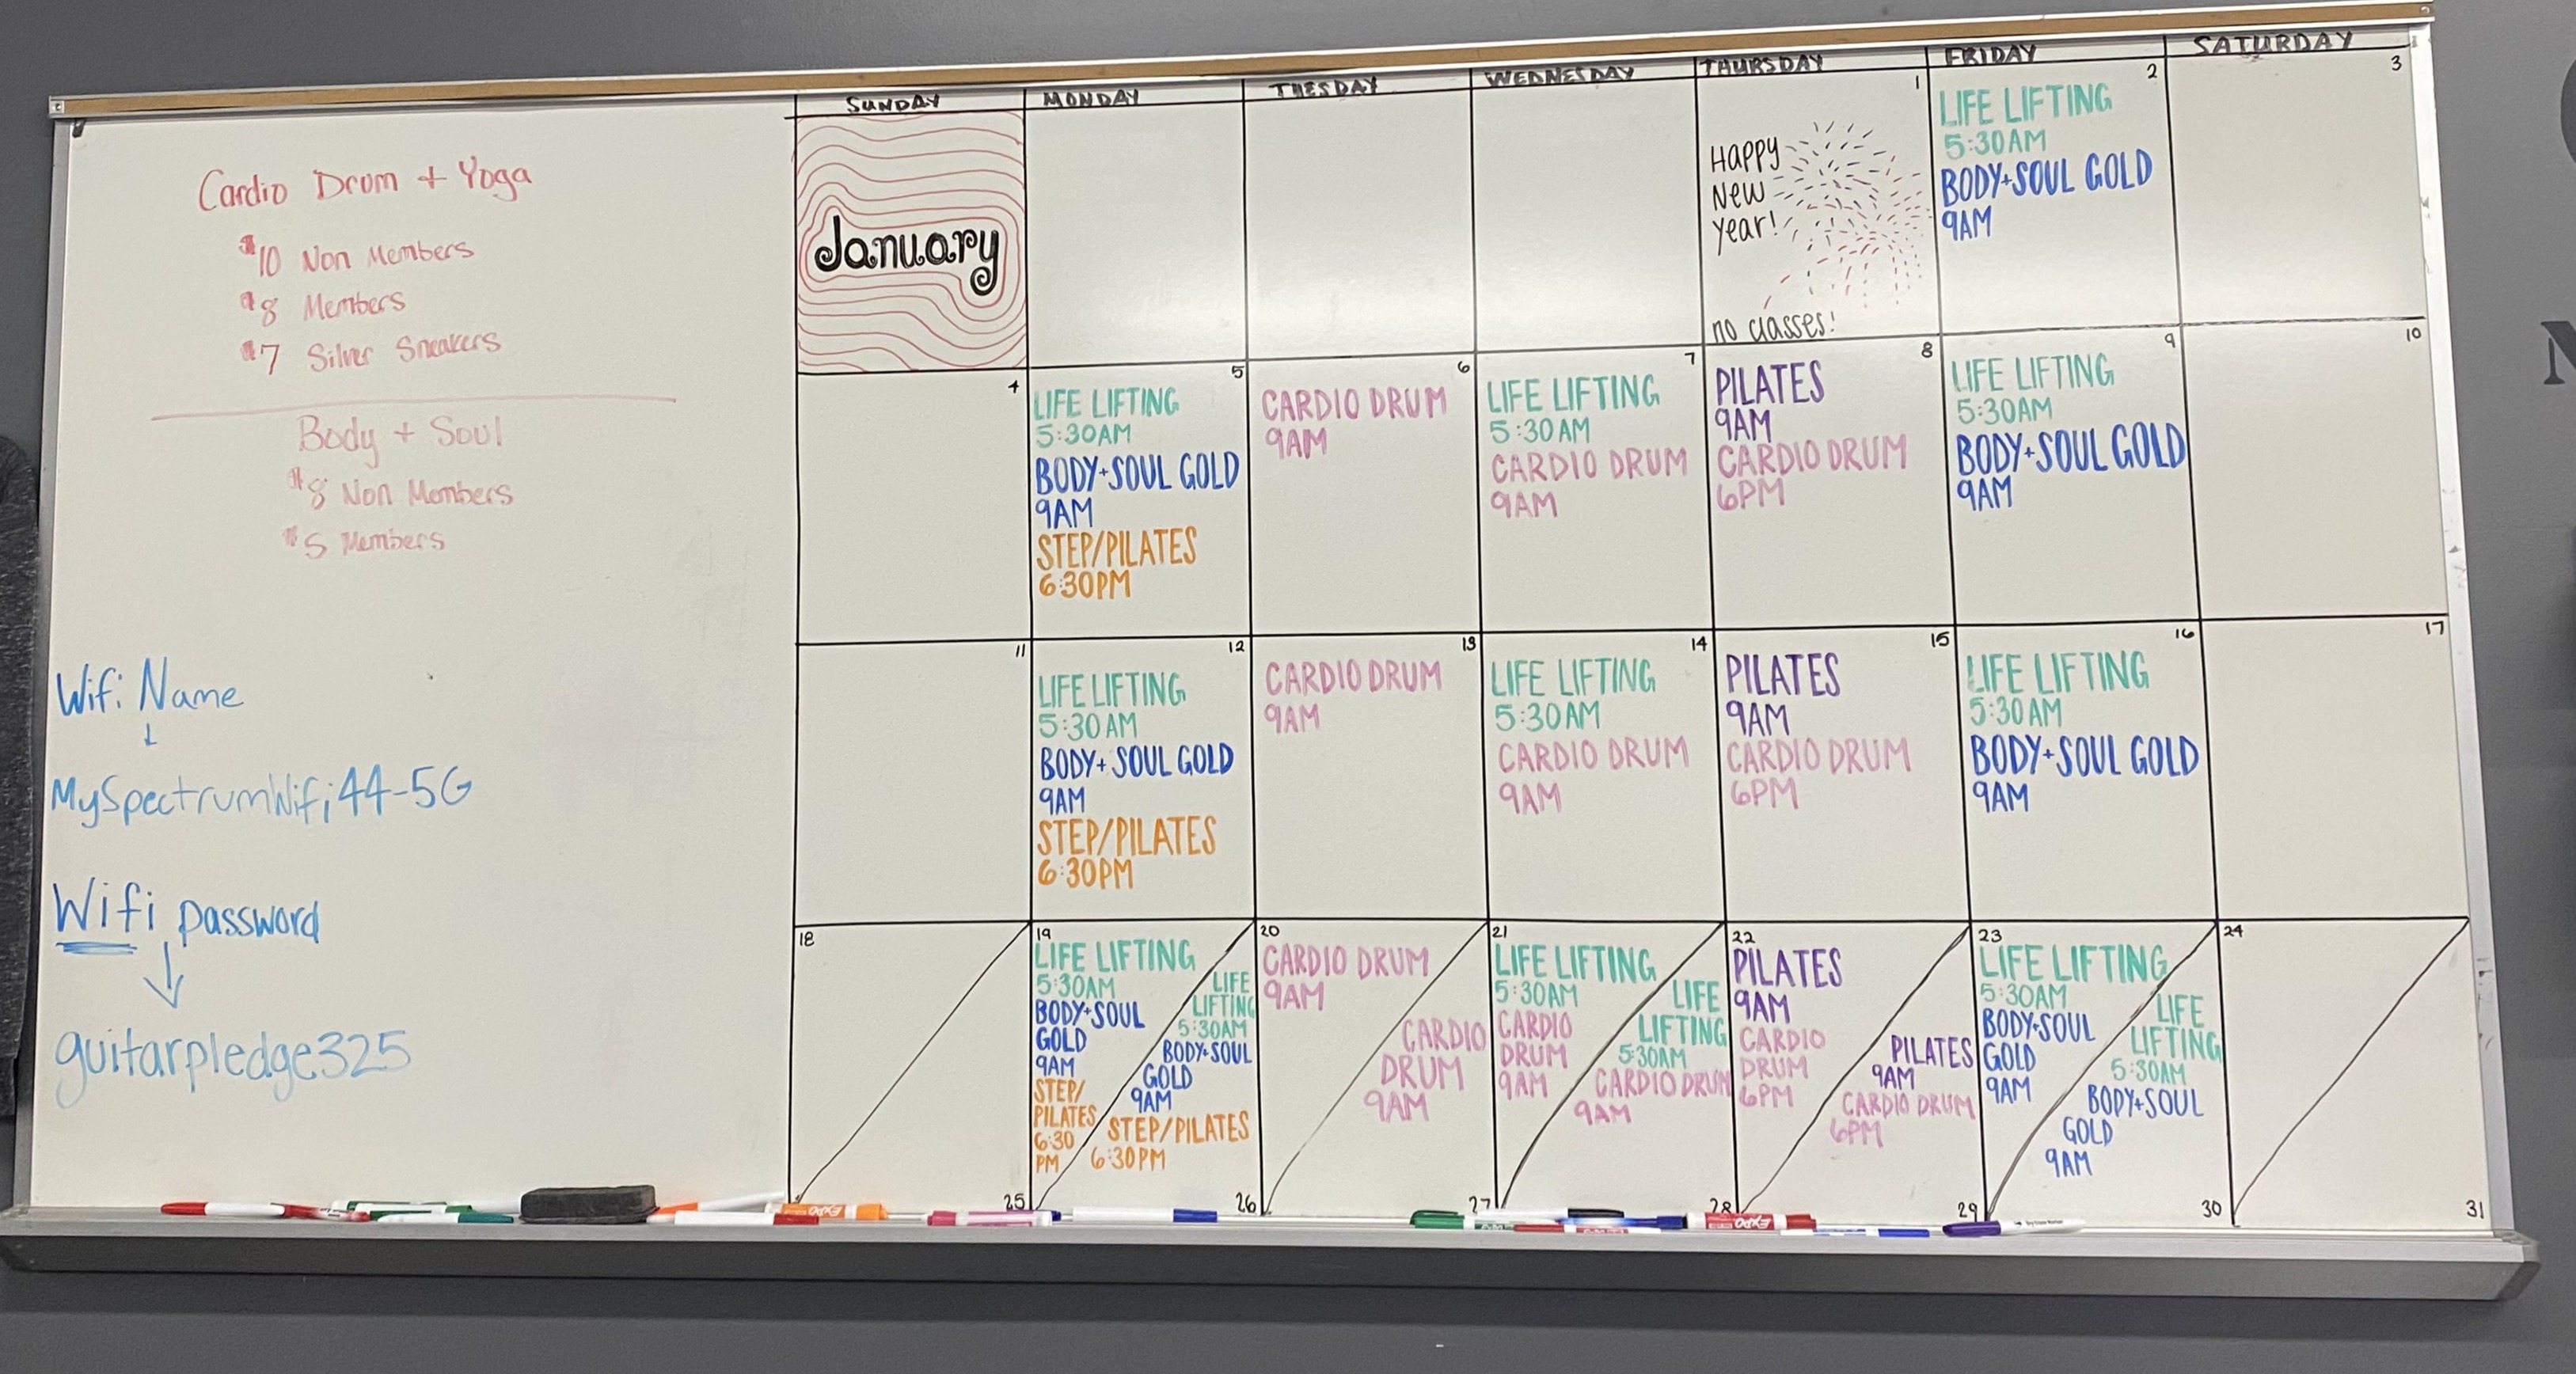 Cardio Drum + Yoga
$10 Non Members
$8 Members
$7 Silver Sneakers
Body + Soul
$8 Non Members
$5 Members
Wifi Name
MySpectrumWifi44-5G
Wifi password
guitarpledge325
SUNDAY MONDAY TUESDAY WEDNESDAY THURSDAY FRIDAY SATURDAY
January
1
Happy
New
Year!
no classes!
2
LIFE LIFTING
5:30AM
BODY+SOUL GOLD
9AM
3
4
5
LIFE LIFTING
5:30AM
BODY+SOUL GOLD
9AM
STEP/PILATES
6:30PM
6
CARDIO DRUM
9AM
7
LIFE LIFTING
5:30AM
CARDIO DRUM
9AM
8
PILATES
9AM
CARDIO DRUM
6PM
9
LIFE LIFTING
5:30AM
BODY+SOUL GOLD
9AM
10
11
12
LIFE LIFTING
5:30AM
BODY+SOUL GOLD
9AM
STEP/PILATES
6:30PM
13
CARDIO DRUM
9AM
14
LIFE LIFTING
5:30AM
CARDIO DRUM
9AM
15
PILATES
9AM
CARDIO DRUM
6PM
16
LIFE LIFTING
5:30AM
BODY+SOUL GOLD
9AM
17
18
25
19
LIFE LIFTING
5:30AM
BODY+SOUL
GOLD
9AM
STEP/
PILATES
6:30
PM
LIFE
LIFTING
5:30AM
BODY+SOUL
GOLD
9AM
STEP/PILATES
6:30PM
26
20
CARDIO DRUM
9AM
CARDIO
DRUM
9AM
27
21
LIFE LIFTING
5:30AM
CARDIO
DRUM
9AM
LIFE
LIFTING
5:30AM
CARDIO DRUM
9AM
28
22
PILATES
9AM
CARDIO
DRUM
6PM
PILATES
9AM
CARDIO DRUM
6PM
29
23
LIFE LIFTING
5:30AM
BODY+SOUL
GOLD
9AM
LIFE
LIFTING
5:30AM
BODY+SOUL
GOLD
9AM
30
24
31
EXPO
EXPO